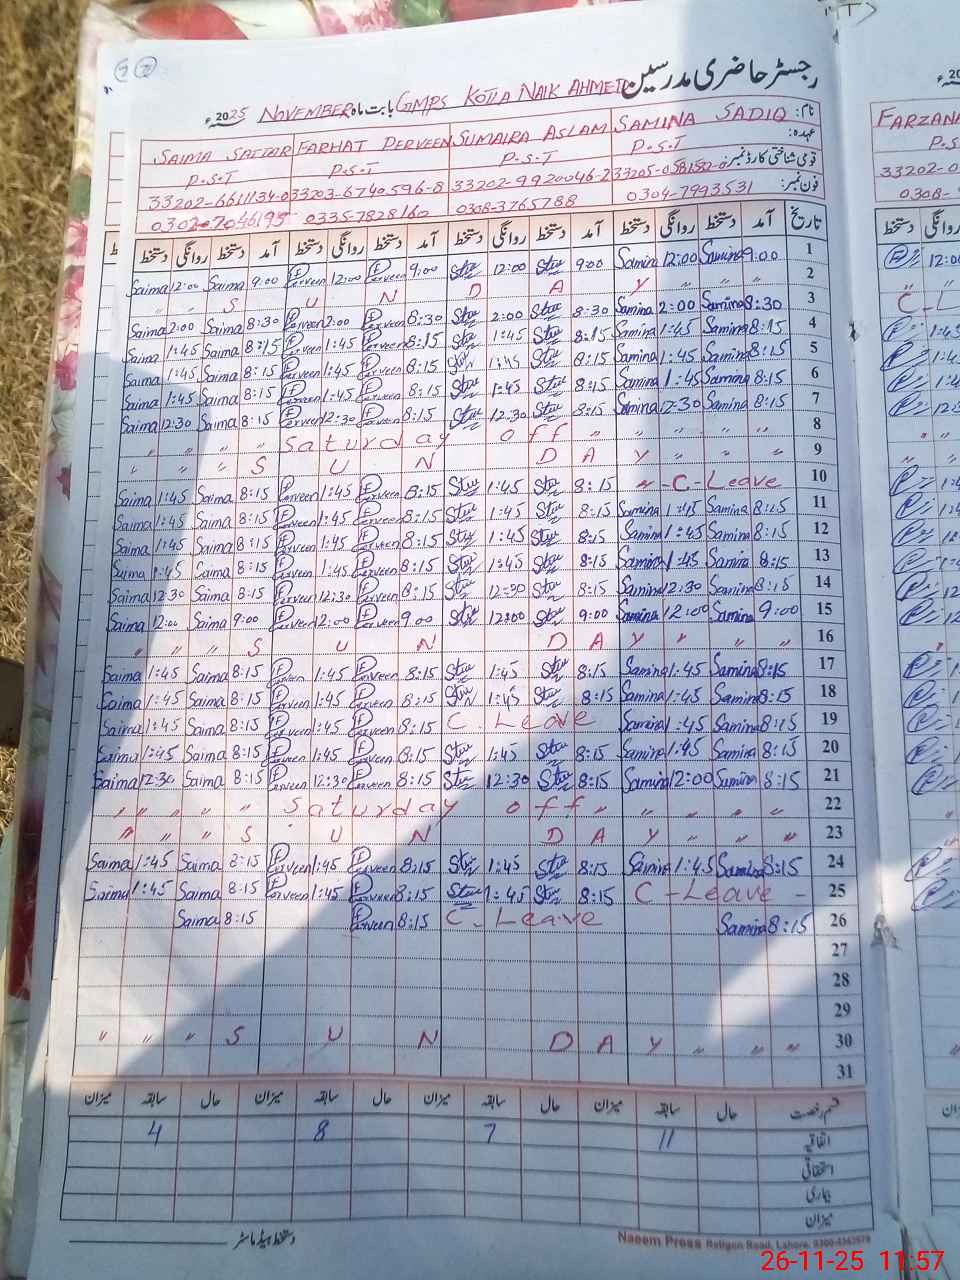 رجسٹر حاضری مدرسین
GMPS KOTLA NAIK AHMED بابت ماہ NOVEMBER 2025ء
نام: SAMINA SADIQ SUMAIRA ASLAM FARHAT PERVEEN SAIMA SATTAR
عہدہ: P.S.T P.S.T P.S.T P.S.T
قومی شناختی کارڈ نمبر: 33202-9920046-2 33203-6740596-8 33202-6611134-0
فون نمبر: 0304-7993531 0308-3765788 0335-7828160
تاریخ آمد دستخط روانگی دستخط آمد دستخط روانگی دستخط آمد دستخط روانگی دستخط آمد دستخط روانگی دستخط
Saima 12:00 Saima 9:00 Perveen 12:00 Perveen 9:00 12:00 9:00 Samina 12:00 Samina 9:00 1
" " S U N D A Y " " " 2
Saima 2:00 Saima 8:30 Perveen 2:00 Perveen 8:30 2:00 8:30 Samina 2:00 Samina 8:30 3
Saima 1:45 Saima 8:15 Perveen 1:45 Perveen 8:15 1:45 8:15 Samina 1:45 Samina 8:15 4
Saima 1:45 Saima 8:15 Perveen 1:45 Perveen 8:15 1:45 8:15 Samina 1:45 Samina 8:15 5
Saima 1:45 Saima 8:15 Perveen 1:45 Perveen 8:15 1:45 8:15 Samina 1:45 Samina 8:15 6
Saima 12:30 Saima 8:15 Perveen 12:30 Perveen 8:15 12:30 8:15 Samina 12:30 Samina 8:15 7
" " " " Saturday off " " " " " 8
" " " S U N D A Y " " " 9
Saima 1:45 Saima 8:15 Perveen 1:45 Perveen 8:15 1:45 8:15 -C-Leave 10
Saima 1:45 Saima 8:15 Perveen 1:45 Perveen 8:15 1:45 8:15 Samina 1:45 Samina 8:15 11
Saima 1:45 Saima 8:15 Perveen 1:45 Perveen 8:15 1:45 8:15 Samina 1:45 Samina 8:15 12
Saima 1:45 Saima 8:15 Perveen 1:45 Perveen 8:15 1:45 8:15 Samina 1:45 Samina 8:15 13
Saima 12:30 Saima 8:15 Perveen 12:30 Perveen 8:15 12:30 8:15 Samina 12:30 Samina 8:15 14
Saima 12:00 Saima 9:00 Perveen 12:00 Perveen 9:00 12:00 9:00 Samina 12:00 Samina 9:00 15
" " " S U N D A Y " " " 16
Saima 1:45 Saima 8:15 Perveen 1:45 Perveen 8:15 1:45 8:15 Samina 1:45 Samina 8:15 17
Saima 1:45 Saima 8:15 Perveen 1:45 Perveen 8:15 1:45 8:15 Samina 1:45 Samina 8:15 18
Saima 1:45 Saima 8:15 Perveen 1:45 Perveen 8:15 C Leave Samina 1:45 Samina 8:15 19
Saima 1:45 Saima 8:15 Perveen 1:45 Perveen 8:15 1:45 8:15 Samina 1:45 Samina 8:15 20
Saima 12:30 Saima 8:15 Perveen 12:30 Perveen 8:15 12:30 8:15 Samina 12:00 Samina 8:15 21
" " " " Saturday off " " " " " 22
" " " S U N D A Y " " " 23
Saima 1:45 Saima 8:15 Perveen 1:45 Perveen 8:15 1:45 8:15 Samina 1:45 Samina 8:15 24
Saima 1:45 Saima 8:15 Perveen 1:45 Perveen 8:15 1:45 8:15 C-Leave - 25
Saima 8:15 Perveen 8:15 C-Leave Samina 8:15 26
27
28
29
" " " S U N D A Y " " " 30
31
قسم رخصت حال سابقہ میزان حال سابقہ میزان حال سابقہ میزان حال سابقہ میزان
اتفاقیہ 11 7 8 4
استحقاقی
بیماری
میزان
دستخط ہیڈ ماسٹر
Naeem Press Ratigan Road, Lahore.
FARZANA
26-11-25 11:57